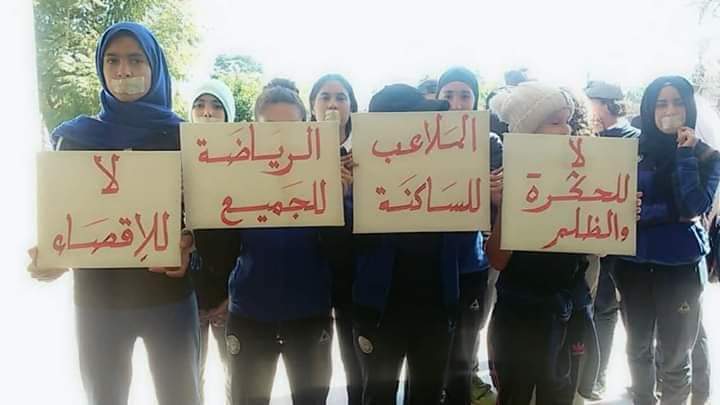 الرياضة
للجميع
الملاعب
للساكنة
لا
للحݣرة
والظلم
لا
للإقصاء